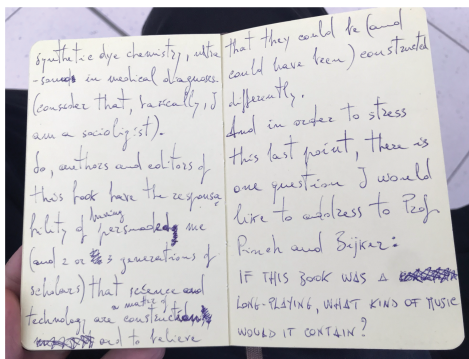 synthetic dye chemistry, ultra
-sound in medical diagnoses
(consider that, basically, I
am a sociologist).
So, authors and editors of
this book have the responsa
bility of having persuaded me
(and 2 or 3 generations of
scholars) that science and
technology are a matter of construction
and to believe
that they could be (and
could have been) constructed
differently.
And in order to stress
this last point, there is
one question I would
like to address to Prof
Pinch and Bijker:
IF THIS BOOK WAS A
LONG-PLAYING, WHAT KIND OF MUSIC
WOULD IT CONTAIN?